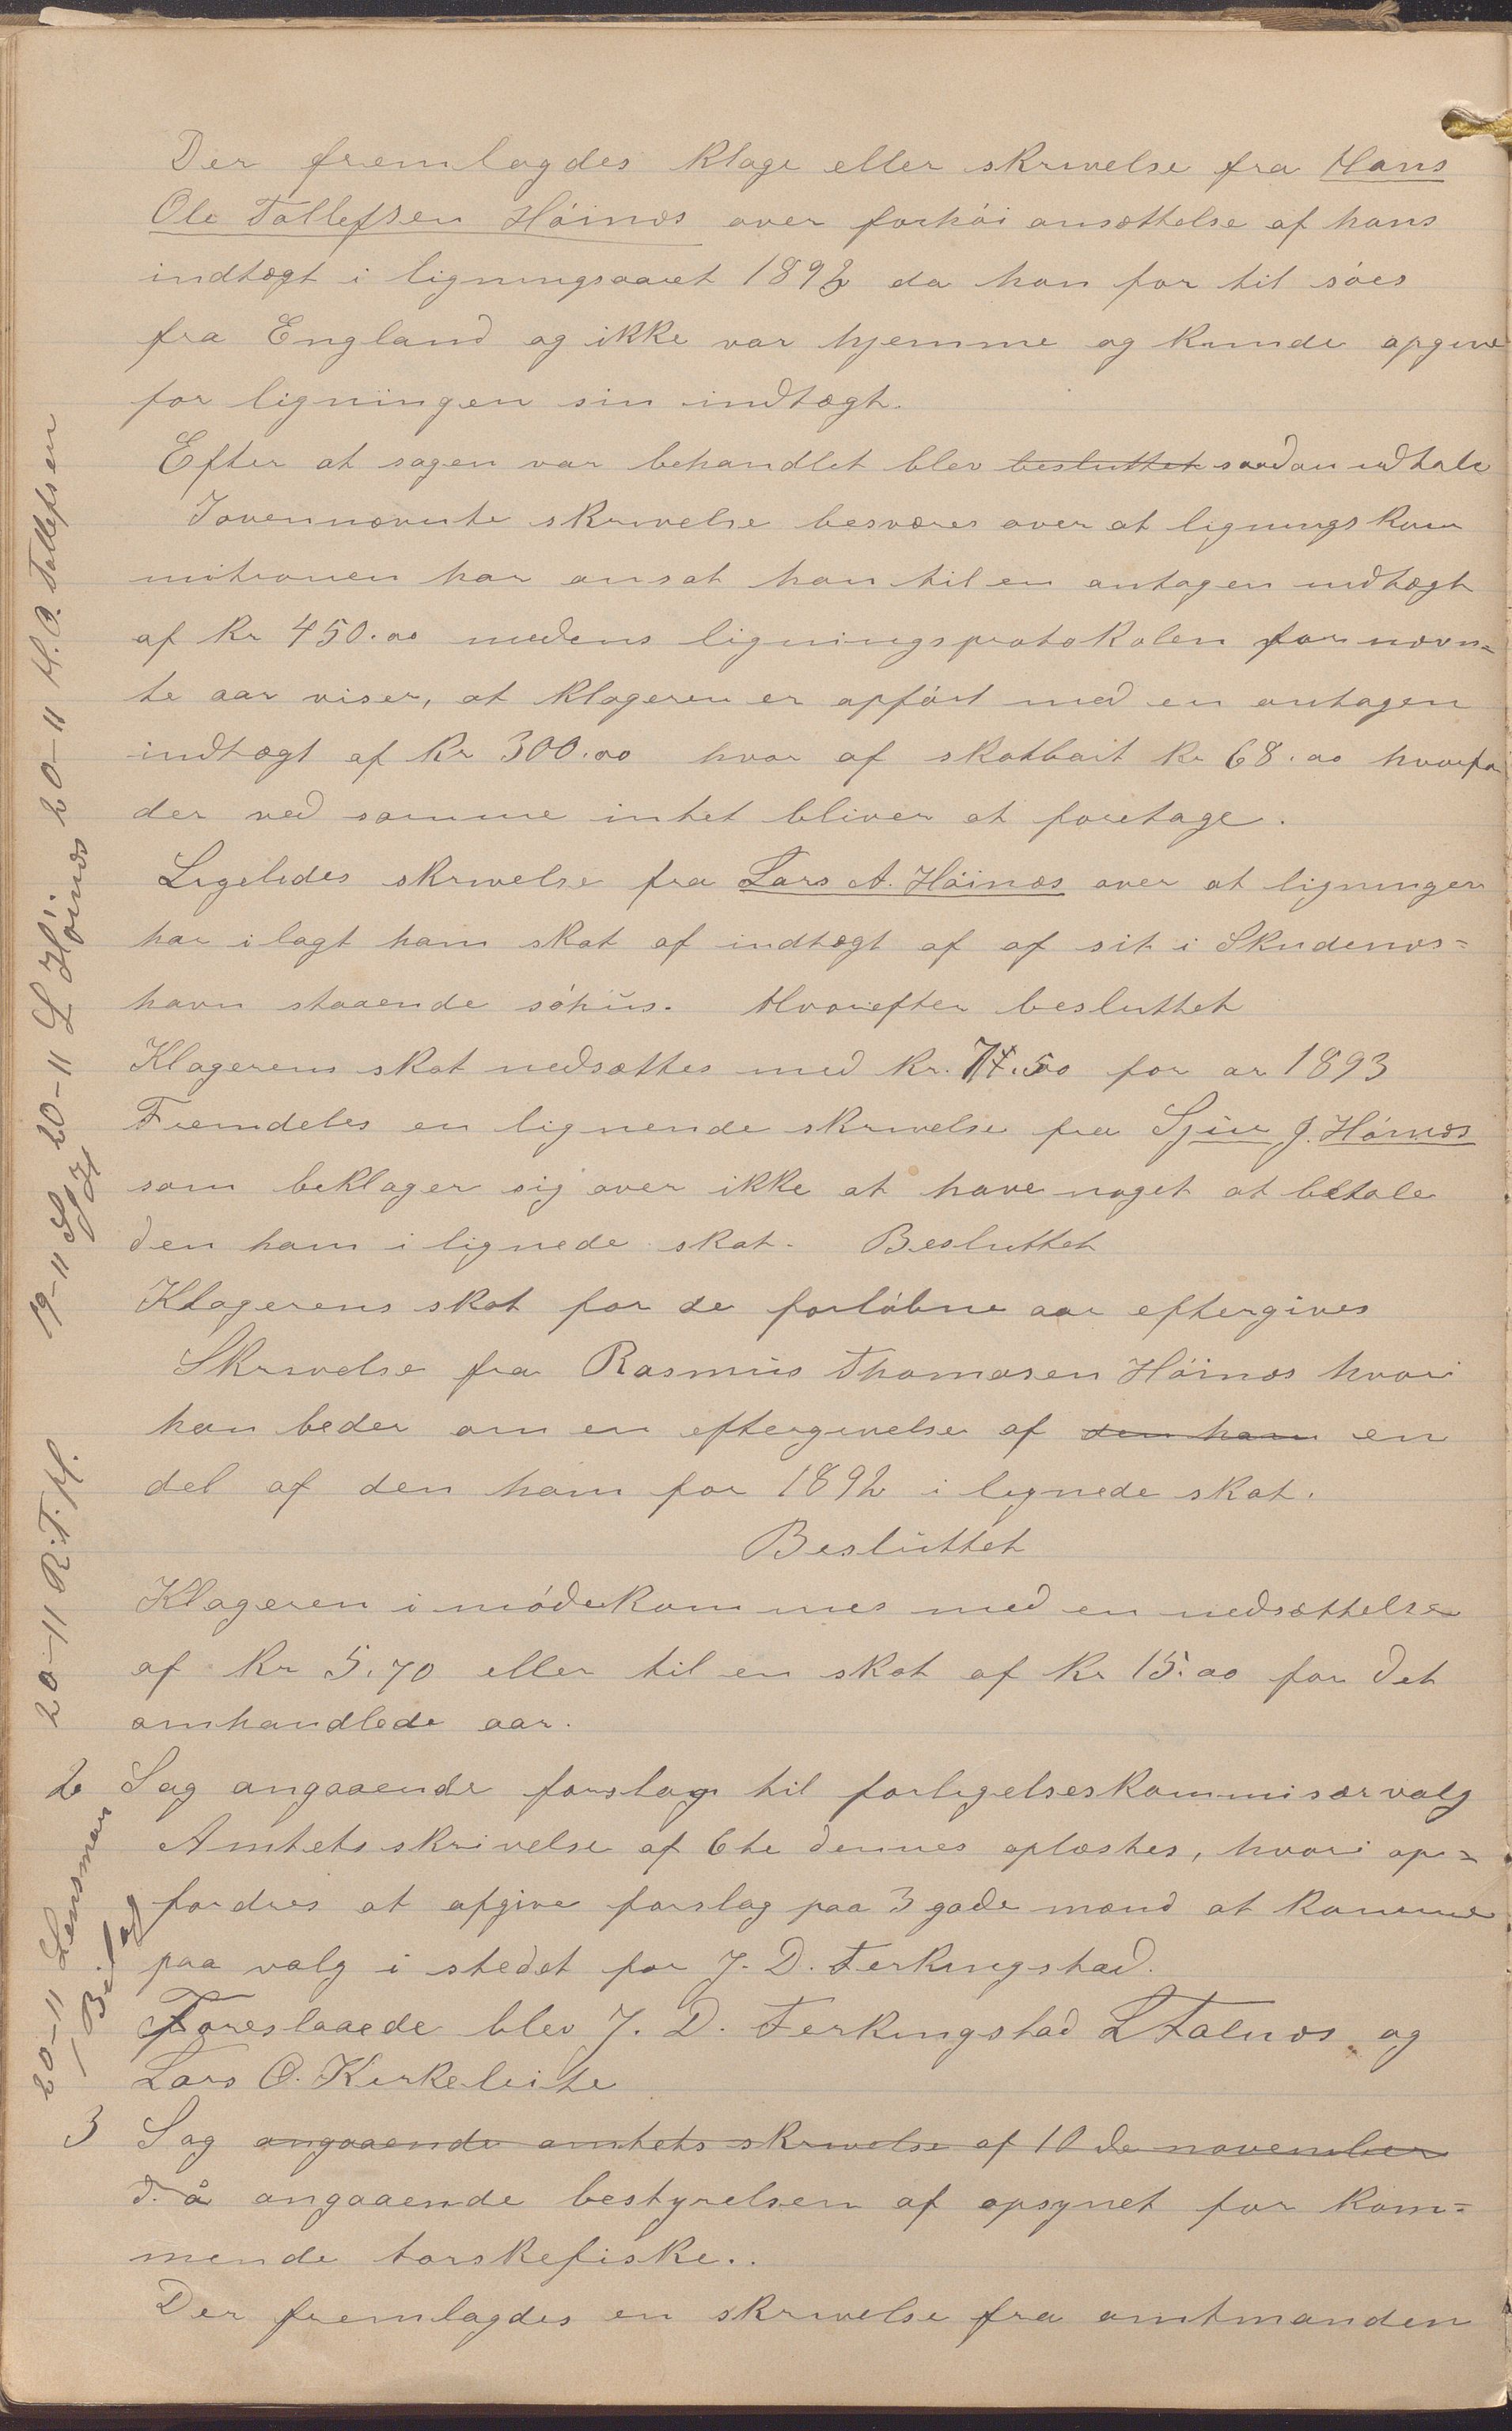 Der fremlagdes klage eller skrivelse fra Hans
Ole Tollefsen Höinæs over forhöi ansættelse af hans
indtægt i ligningsaaret 1892 da han for til söes
fra England og ikke var hjemme og kunde opgive
for ligningen sin indtægt.
Efter at sagen var behandlet blev besluttet saadan udtale
I ovennævnte skrivelse besværes over at ligningskom
mitionen har ansat han til en antagen indtægt
af kr 450.00 medens ligningsprotokolen for nævn=
te aar viser, at klageren er opfört med en antagen
indtægt af kr 300.00 hvor af skatbart kr 68.00 hvorfor
der ved samme intet bliver at foretage.
Ligeledes skrivelse fra Lars A. Höinæs over at ligningen
har ilagt ham skat af indtægt af af sit i Skudenæs=
havn staaende söhus. Hvorefter besluttet
Klagerens skat nedsættes med kr. 50 for ar 1893
Fremdeles en lignende skrivelse fra Sjur J. Höinæs
som beklager sig over ikke at have noget at betale
den ham i lignede skat. Besluttet
Klagerens skat for de forløbne aar eftergives
Skrivelse fra Rasmus Thomasen Höinæs hvori
han beder om en eftergivelse af den ham en
del af den ham for 1892 i lignede skat.
Besluttet
Klageren i mödekommes med en nedsættelse
af kr 5.70 eller til en skat af kr 15.00 for det
omhandlede aar.
2 Sag angaaende forslag til forligelseskommisærvalg
Amtets skrivelse af 6te dennes oplæstes, hvori op=
fordres at afgive forslag paa 3 gode mænd at komme
paa valg i stedet for J. D. Ferkingstad.
Foreslaaede blev J. D. Ferkingstad L Falnæs og
Lars O. Kirkeleite
3 Sag angaaende amtets skrivelse af 10de november
d. å angaaende bestyrelsen af opsynet for kom=
mende torskefiske..
Der fremlagdes en skrivelse fra amtmanden
20-11 H. O. Tollefsen
20-11 L Höinæs
19-11 S J H
20-11 R. T. H.
20-11 Lensman